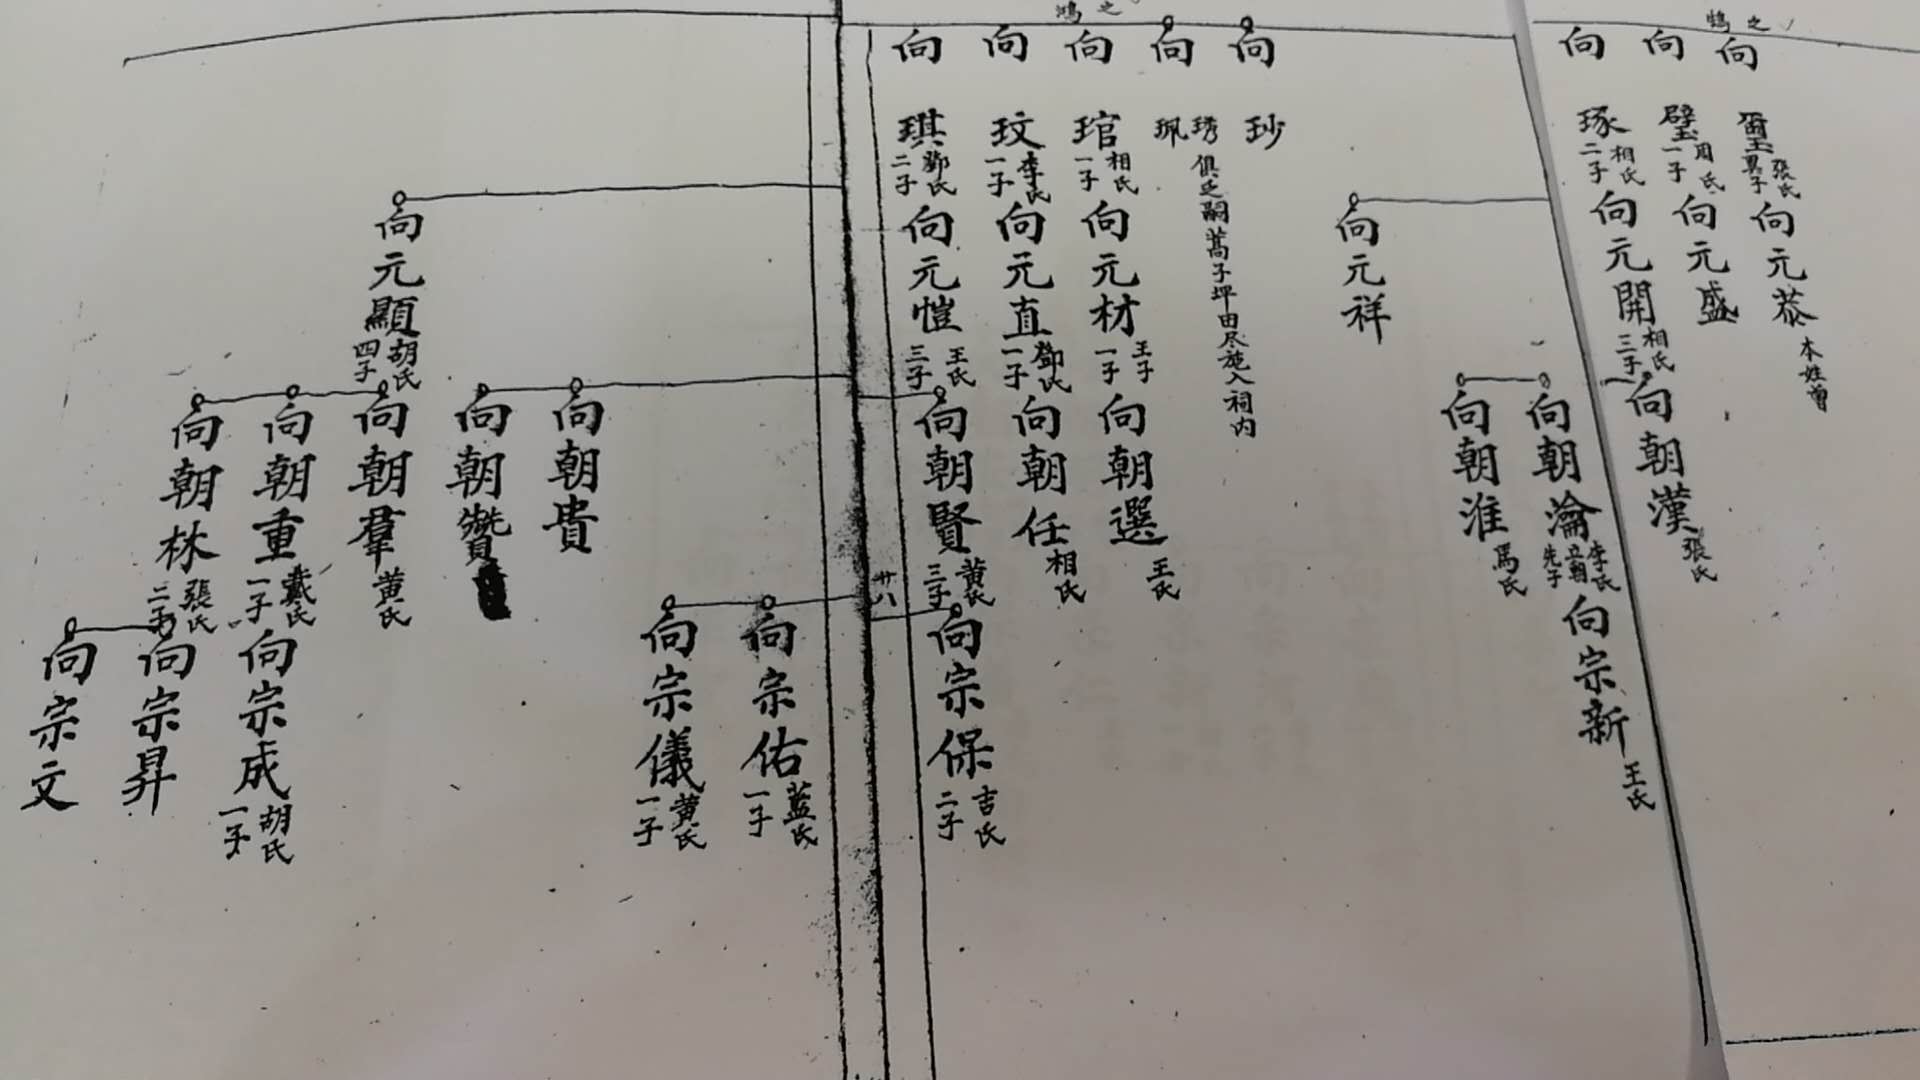 鵠之
向璽
張氏
異子
向元恭
本姓曾
向璧
周氏
一子
向元盛
向琢
相氏
二子
向元開
相氏
三子
向朝漢
張氏
向朝瀹
李氏
向宗新
王氏
向朝淮
馬氏
向元祥
鴻之
向玅
向琇
珮
俱乏嗣蒿子坪田尽施入祠内
向琯
相氏
一子
向元材
王子
一子
向朝選
王氏
向玟
李氏
一子
向元直
鄧氏
一子
向朝任
相氏
向琪
鄧氏
二子
向元愷
王氏
三子
向朝賢
黄氏
三子
向宗保
吉氏
二子
廿八
向宗佑
藍氏
一子
向宗儀
黄氏
一子
向朝貴
向朝贊
向元顯
胡氏
四子
向朝羣
黄氏
向朝重
戴氏
一子
向宗成
胡氏
一子
向朝林
張氏
二子
向宗昇
向宗文